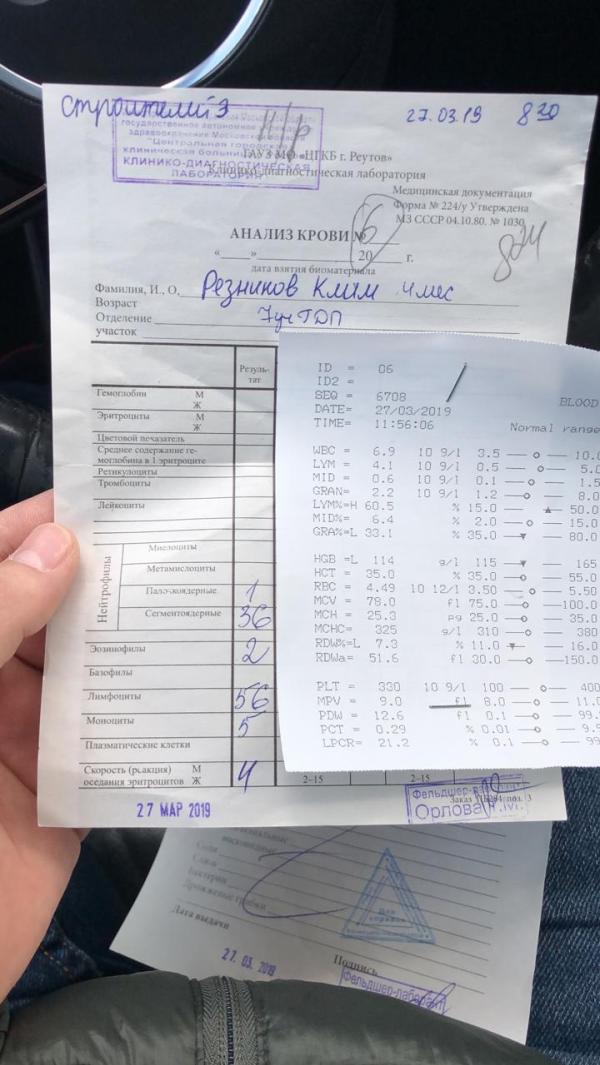 Строителей 9
27.03.19 8 30
государственное автономное учреждение
здравоохранения Московской области
"Центральная городская
клиническая больница
КЛИНИКО-ДИАГНОСТИЧЕСКАЯ
ЛАБОРАТОРИЯ
ГАУЗ МО «ЦГКБ г. Реутов»
Клинико-диагностическая лаборатория
Медицинская документация
Форма № 224/у Утверждена
МЗ СССР 04.10.80. № 1030
АНАЛИЗ КРОВИ № 6
«___»____________20____ г.
дата взятия биоматериала
Фамилия, И., О, Резников Клим 4 мес
Возраст
Отделение
участок
Резуль-
тат
Гемоглобин М
Ж
Эритроциты М
Ж
Цветовой показатель
Среднее содержание ге-
моглобина в 1 эритроците
Ретикулоциты
Тромбоциты
Лейкоциты
Нейтрофилы
Миелоциты
Метамиелоциты
Палочкоядерные 1
Сегментоядерные 36
Эозинофилы 2
Базофилы
Лимфоциты 56
Моноциты 5
Плазматические клетки
Скорость (реакция) М
оседания эритроцитов Ж 4 2–15 2–15
27 МАР 2019
Фельдшер-
Орлова
ID = 06
ID2 =
SEQ = 6708 BLOOD
DATE= 27/03/2019
TIME= 11:56:06 Normal range
WBC = 6.9 10 9/l 3.5 10.0
LYM = 4.1 10 9/l 0.5 5.0
MID = 0.6 10 9/l 0.1 1.5
GRAN= 2.2 10 9/l 1.2 8.0
LYM%=H 60.5 % 15.0 50.0
MID%= 6.4 % 2.0 15.0
GRA%=L 33.1 % 35.0 80.0
HGB =L 114 g/l 115 165
HCT = 35.0 % 35.0 55.0
RBC = 4.49 10 12/l 3.50 5.50
MCV = 78.0 fl 75.0 100.0
MCH = 25.3 pg 25.0 35.0
MCHC= 325 g/l 310 380
RDW%=L 7.3 % 11.0 16.0
RDWa= 51.6 fl 30.0 150.0
PLT = 330 10 9/l 100 400
MPV = 9.0 fl 8.0 11.0
PDW = 12.6 fl 0.1 99.
PCT = 0.29 % 0.01 9.9
LPCR= 21.2 % 0.1 99
Слизь
Бактерии
Дрожжевые грибки
Дата выдачи
27. 03. 2019
Подпись
Фельдшер-лаборант